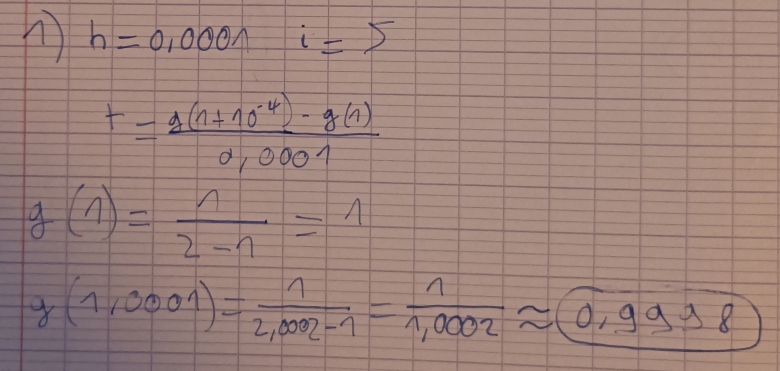 1) h = 0,0001 i = 5
t = g(1+10^-4) - g(1) / 0,0001
g(1) = 1 / 2-1 = 1
g(1,0001) = 1 / 2,0002-1 = 1 / 1,0002 ≈ 0,9998